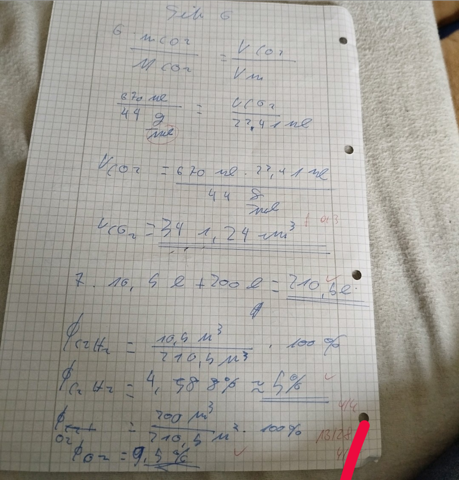 6 mCO₂ / MCO₂ = VCO₂ / Vm
670 ml / 44 g/ml = VCO₂ / 22,41 ml
VCO₂ = 670 ml · 22,41 ml / 44 g/ml
VCO₂ = 341,24 m³
7. 10,5 l + 200 l = 210,5 l
ϕC₂H₂ = 10,5 m³ / 210,5 m³ · 100%
ϕC₂H₂ = 4,988% ≈ 5%
ϕO₂ = 200 m³ / 210,5 m³ · 100%
ϕO₂ = 9,5%